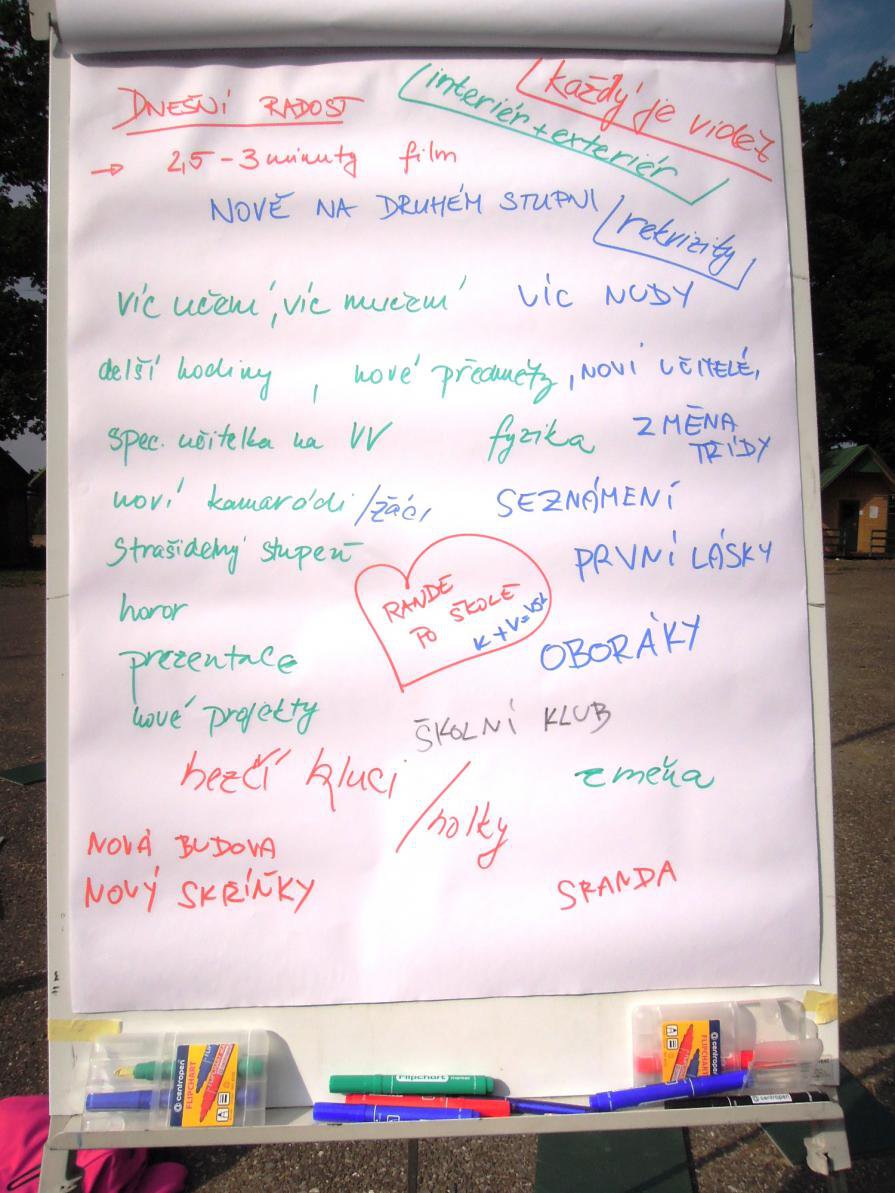 DNEŠNÍ RADOST
každý je videt
interiér + exteriér
→ 2,5 - 3 minuty film
NOVĚ NA DRUHÉM STUPNI
rekvizity
víc učení, víc mučení víc NUDY
delší hodiny, nové předměty, NOVÍ UČITELÉ,
spec. učitelka na VV fyzika ZMĚNA TŘÍDY
noví kamarádi / žáci SEZNÁMENÍ
Strašidelný stupeň PRVNÍ LÁSKY
horor
RANDE
PO ŠKOLE
K+V=VSL
prezentace OBORÁKY
nové projekty ŠKOLNÍ KLUB
hezčí kluci / holky změna
NOVÁ BUDOVA
NOVÝ SKŘÍŇKY SRANDA
centropen FLIPCHART
Flipchart marker
centropen FLIPCHART
centropen